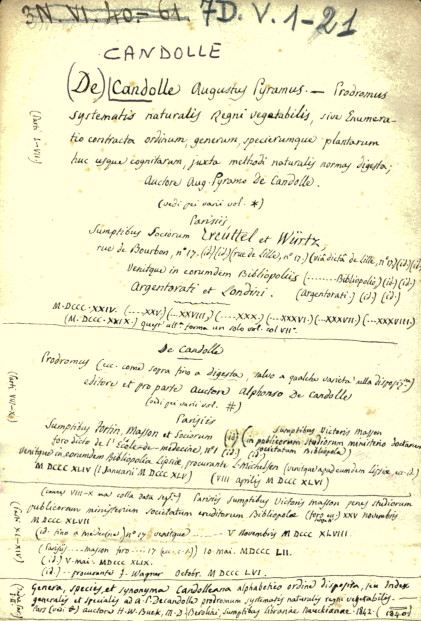 3N. VI. 40=61. 7D. V. 1-21
CANDOLLE
(De) Candolle Augustus Pyramus. — Prodromus
systematis naturalis Regni vegetabilis, sive Enumera-
tio contracta ordinum, generum, specierumque plantarum
huc usque cognitarum, juxta methodi naturalis normas digesta;
Auctore Aug. Pyramo De Candolle.
(Parti I-VII)
(vedi pei varii vol. *)
Parisiis,
Sumptibus Sociorum Treuttel et Würtz,
rue de Bourbon, nº 17. (id)(id)(rue de Lille, nº 17.)(via dictâ de Lille, nº 17)(id)(id)
Venitque in eorumdem Bibliopoliis (........Bibliopolio)(id)(id)
Argentorati et Londini. (Argentorati.) (id.) (id.)
M·DCCC·XXIV. (....XXV.) (...XXVIII.) (...XXX.) (...XXXVI.) (...XXXVII.) (...XXXVIII.)
(M.DCCC.XXIX.) quest' ult. forma un solo vol. col VIIº.
De Candolle
Prodromus (ecc. come sopra fino a digesta, salvo a qualche varietà nella disposiz.)
editore et pro parte Auctore Alphonso De Candolle
(vedi pei varii vol. #)
Parisiis
Sumptibus Fortin, Masson et Sociorum (id) Sumptibus Victoris Masson
foro dicto de l'École-de-médecine, nº 1 (id) (in publicorum studiorum ministerio doctarum
societatum Bibliopola)
Venitque in eorundem Bibliopolio Lipsiae procurante L. Michelsen (venitque apud eumdem Lipsiae, ecc. id.)
M DCCC XLIV (1 Januarii M DCCC XLV) (VIII aprilis M DCCC XLVI)
Parisiis Sumptibus Victoris Masson penes studiorum
publicorum ministerium societatum eruditorum Bibliopolae XXV novembris
M DCCC XLVII
(id. fino a médecine) nº 17 venitque — V Novembris M DCCC XLVIII
(Parisiis.... Masson foro .... 17 10 Mai. MDCCC LII.
(id.) V. Mai MDCCC XLIX.
(id.) — procurante J. Wagner Octobr. M DCCC LVI.
Genera, species et synonyma Candolleana alphabetico ordine disposita, seu Index
generalis et specialis ad A. P. Decandolle prodromum systematis naturalis regni vegetabilis.—
Pars (vidi #) auctore H. W. Buek, M.D. Berolini, Sumptibus librariae Nauckianae 1842. (1840)